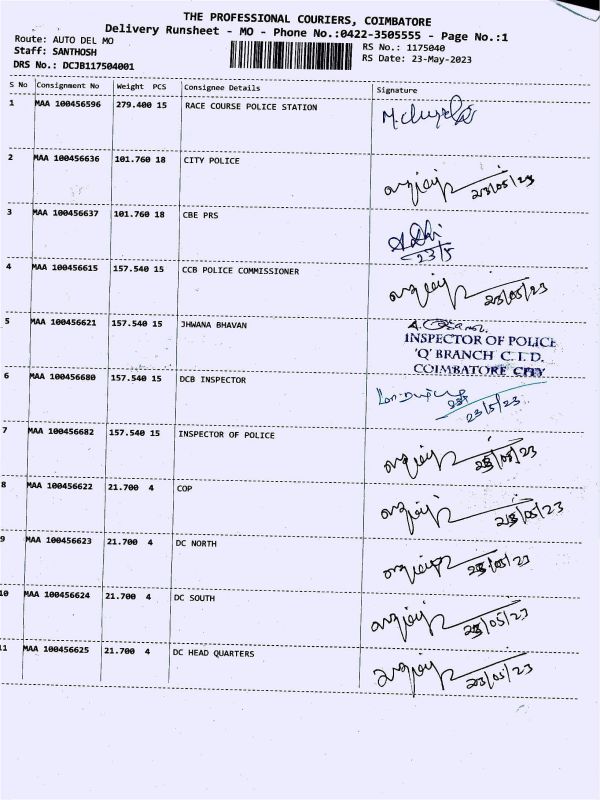 THE PROFESSIONAL COURIERS, COIMBATORE
Delivery Runsheet - MO - Phone No.:0422-3505555 - Page No.:1
Route: AUTO DEL MO
RS No.: 1175040
Staff: SANTHOSH
RS Date: 23-May-2023
DRS No.: DCJB117504001
S No Consignment No Weight PCS Consignee Details Signature
1 MAA 100456596 279.400 15 RACE COURSE POLICE STATION
2 MAA 100456636 101.760 18 CITY POLICE
23/05/23
3 MAA 100456637 101.760 18 CBE PRS
23/5
4 MAA 100456615 157.540 15 CCB POLICE COMMISSIONER
23/05/23
5 MAA 100456621 157.540 15 JHWANA BHAVAN
INSPECTOR OF POLICE
'Q' BRANCH C.I.D.
COIMBATORE CITY
6 MAA 100456680 157.540 15 DCB INSPECTOR
23/5/23
7 MAA 100456682 157.540 15 INSPECTOR OF POLICE
23/05/23
8 MAA 100456622 21.700 4 COP
23/05/23
9 MAA 100456623 21.700 4 DC NORTH
23/05/23
10 MAA 100456624 21.700 4 DC SOUTH
23/05/23
11 MAA 100456625 21.700 4 DC HEAD QUARTERS
23/05/23